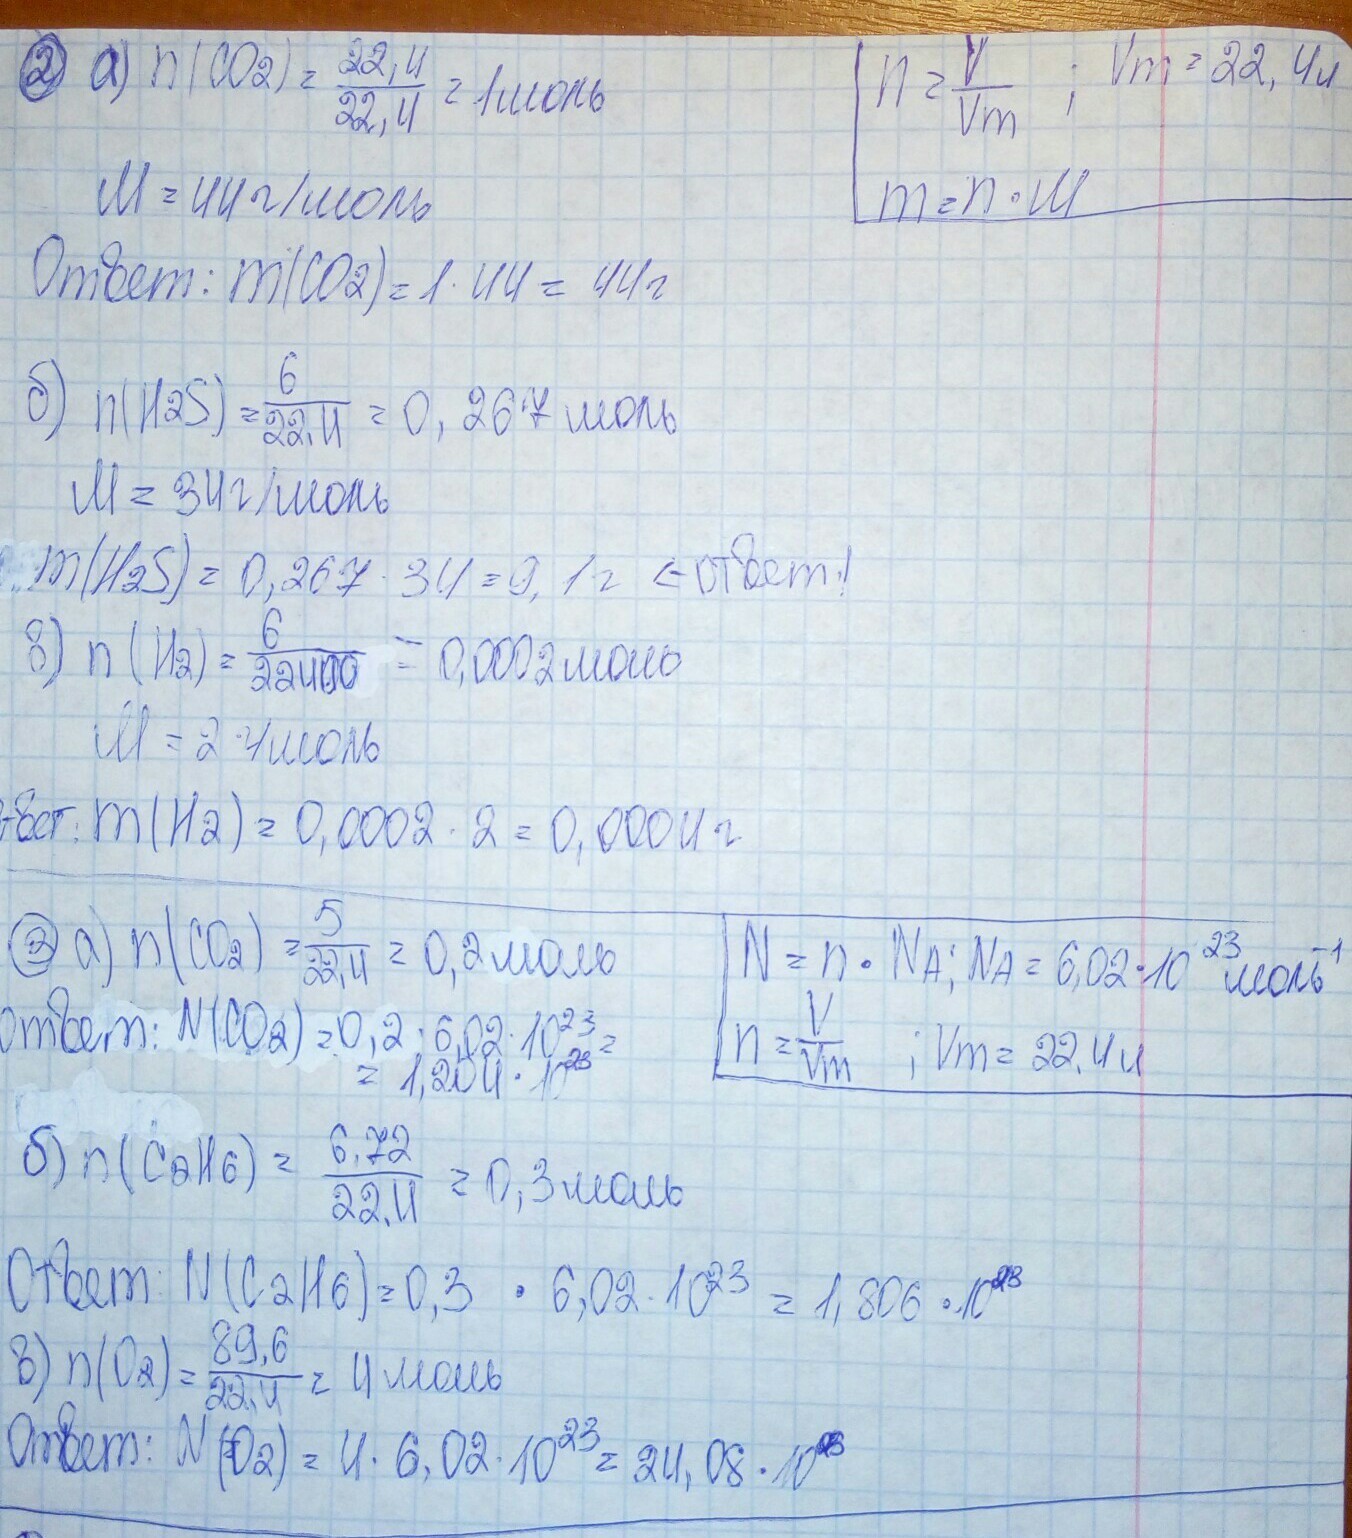 2) а) n(CO2) = 22,4/22,4 = 1моль
n = V/Vm ; Vm = 22,4л
M = 44г/моль
m = n · M
Ответ: m(CO2) = 1 · 44 = 44г
б) n(H2S) = 6/22,4 = 0,267 моль
M = 34г/моль
m(H2S) = 0,267 · 34 = 9,1г ← ответ!
в) n(H2) = 6/22400 = 0,0002моль
M = 2 г/моль
твет: m(H2) = 0,0002 · 2 = 0,0004г
3) а) n(CO2) = 5/22,4 = 0,2моль
N = n · NA; NA = 6,02·10²³ моль⁻¹
Ответ: N(CO2) = 0,2 · 6,02·10²³ =
= 1,204 · 10²³
n = V/Vm ; Vm = 22,4л
б) n(C2H6) = 6,72/22,4 = 0,3моль
Ответ: N(C2H6) = 0,3 · 6,02·10²³ = 1,806 · 10²³
в) n(O2) = 89,6/22,4 = 4моль
Ответ: N(O2) = 4 · 6,02·10²³ = 24,08 · 10²³